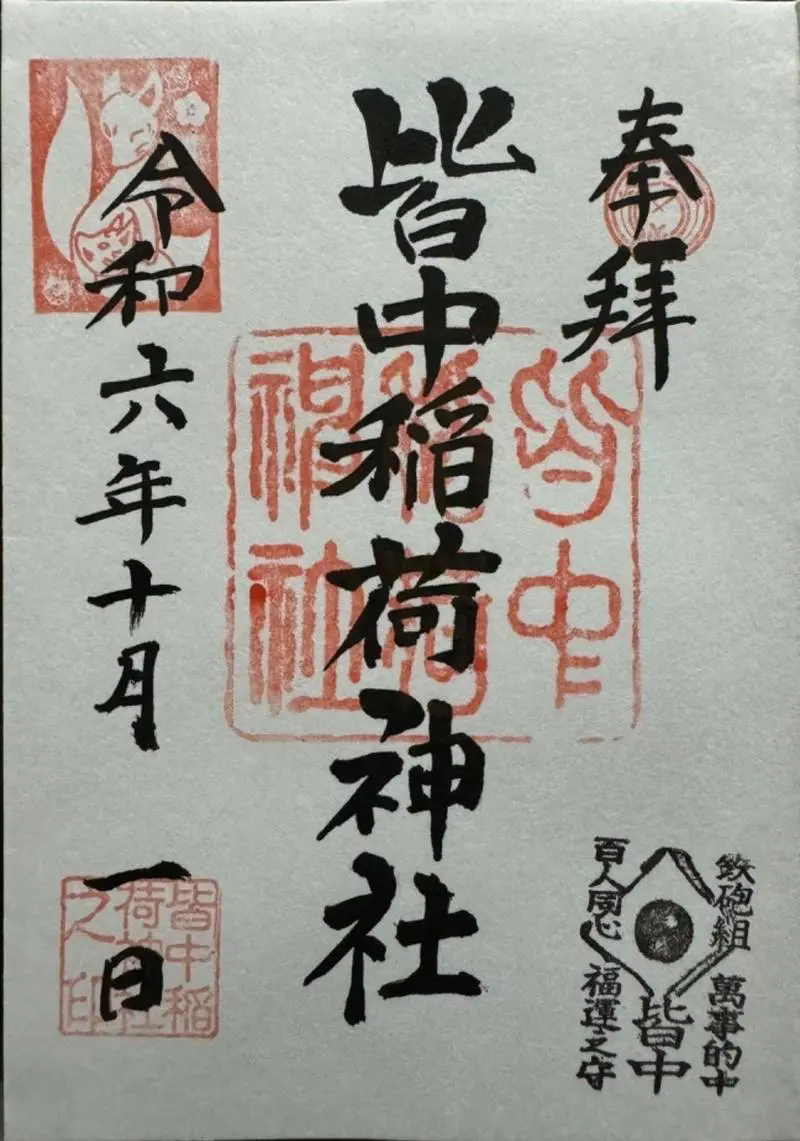 奉拝
皆中稲荷神社
令和六年十月一日
皆中
稲荷
神社
鉄砲組
萬事的中
皆中
百人同心
福運之守
皆中稲
荷神社
之印